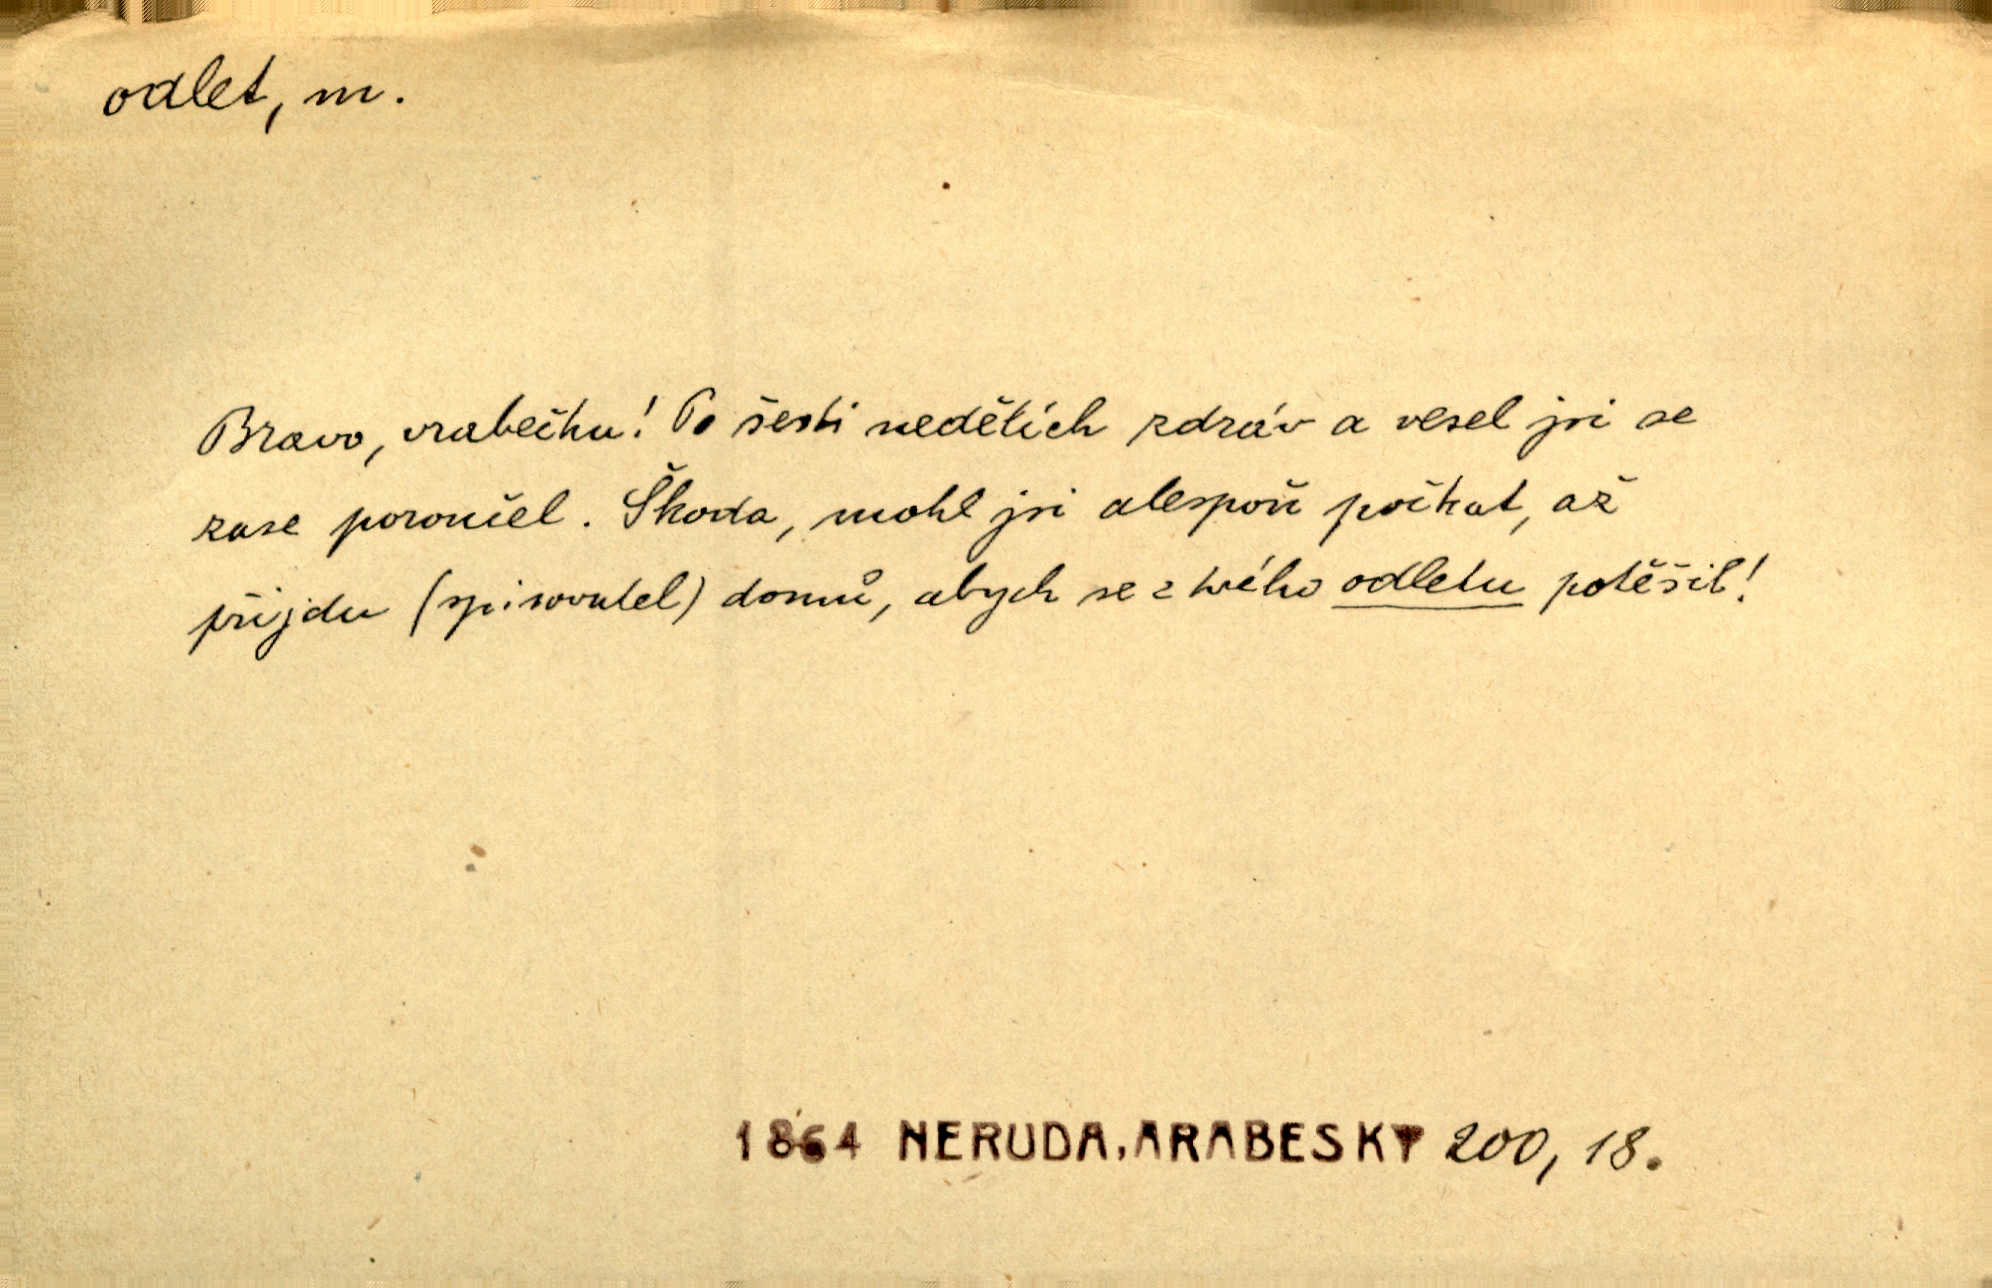 odlet, m.
Bravo, vrabečku! Po šesti nedělích zdráv a vesel jsi se
zase poroučel. Škoda, mohl jsi alespoň počkat, až
přijdu (spisovatel) domů, abych se z tvého odletu potěšil!
1864 NERUDA, ARABESKY 200, 18.